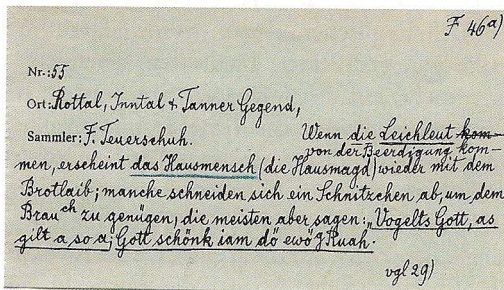 F 46a)
Nr.: 55
Ort: Rottal, Inntal & Tanner Gegend,
Sammler: F. Teuerschuh. Wenn die Leichleut kom-
von der Beerdigung kom-
men, erscheint das Hausmensch (die Hausmagd) wieder mit dem
Brotlaib; manche schneiden sich ein Schnitzchen ab, um dem
Brauch zu genügen, die meisten aber sagen: „Vogelts Gott, as
gilt a so a; Gott schönk iam dö ewög Ruah.
vgl 29)